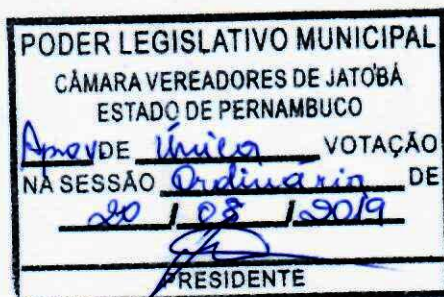 PODER LEGISLATIVO MUNICIPAL
CÂMARA VEREADORES DE JATOBÁ
ESTADO DE PERNAMBUCO
Aprov DE Única VOTAÇÃO
NA SESSÃO Ordinária DE
20 / 08 / 2019
PRESIDENTE